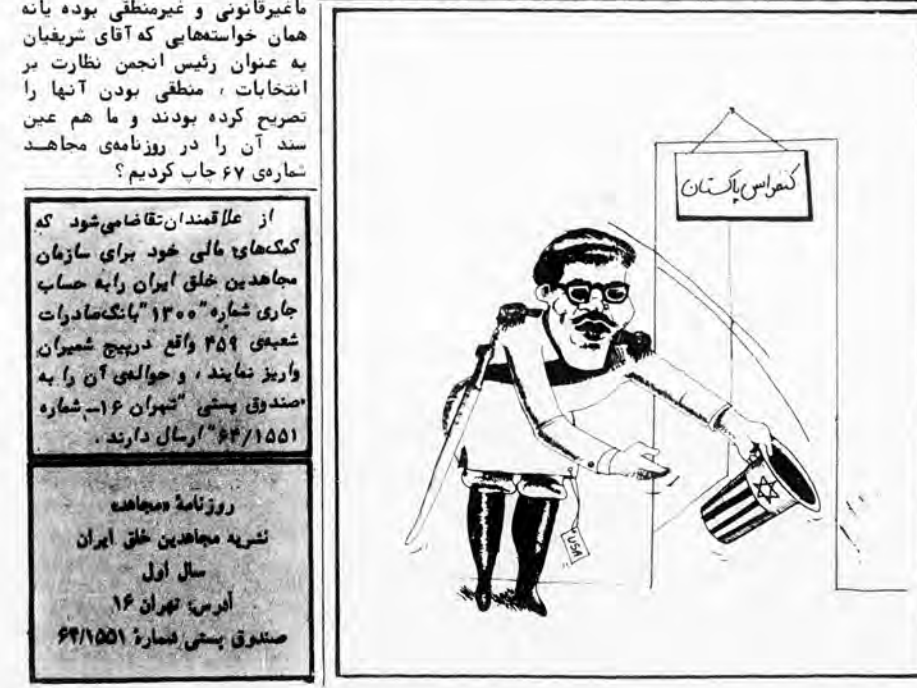 ماغیرقانونی و غیرمنطقی بوده یانه
همان خواسته‌هایی که آقای شریفیان
به عنوان رئیس انجمن نظارت بر
انتخابات ، منطقی بودن آنها را
تصریح کرده بودند و ما هم عین
سند آن را در روزنامه‌ی مجاهـد
شماره‌ی ۶۷ چاپ کردیم ؟
از علاقمندان تقاضا می‌شود که
کمک‌های مالی خود برای سازمان
مجاهدین خلق ایران رابه حساب
جاری شماره "۱۳۰۰" بانک صادرات
شعبه‌ی ۴۵۹ واقع درپیچ شمیران
واریز نمایند ، و حواله‌ی آن را به
صندوق پستی "تهران ۱۶ــ شماره
۶۴/۱۵۵۱" ارسال دارند .
روزنامهٔ «مجاهد»
نشریه مجاهدین خلق ایران
سال اول
آدرس: تهران ۱۶
صندوق پستی شمارهٔ ۶۴/۱۵۵۱
کنفرانس پاکستان
USA